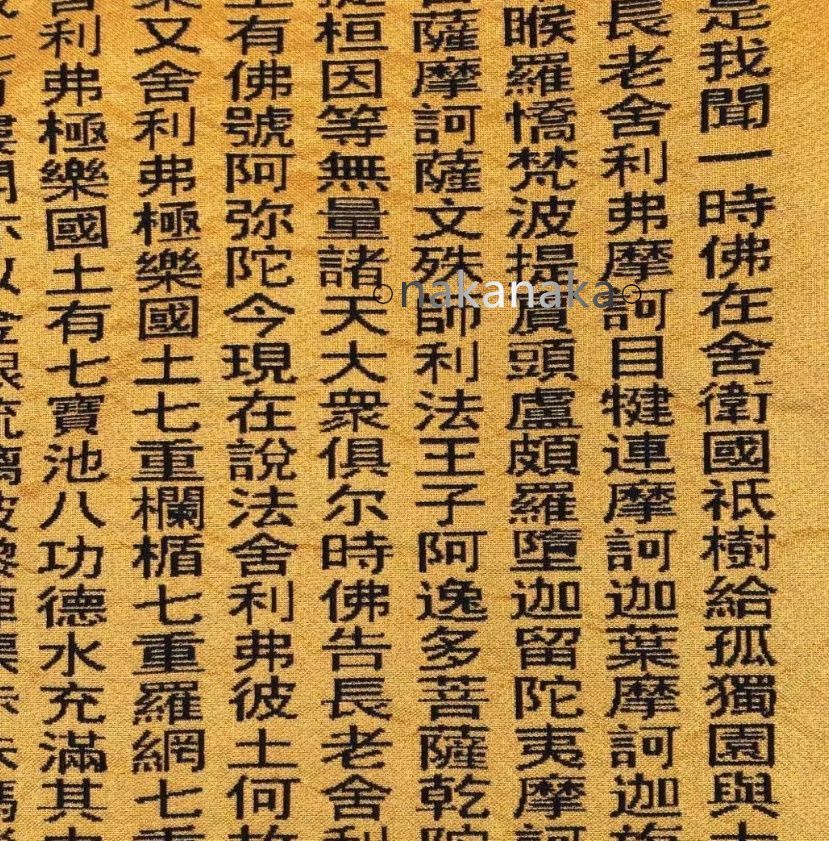 是我聞一時佛在舍衛國祇樹給孤獨園與
長老舍利弗摩訶目犍連摩訶迦葉摩訶迦
睺羅憍梵波提賓頭盧頗羅墮迦留陀夷摩訶
薩摩訶薩文殊師利法王子阿逸多菩薩乾陀
桓因等無量諸天大衆俱尔時佛告長老舍利
土有佛號阿弥陀今現在說法舍利弗彼土何
又舍利弗極樂國土七重欄楯七重羅網七重
舍利弗極樂國土有七寶池八功德水充滿其
○nakanaka○